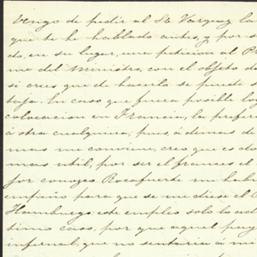 Vengo de pedir al Sr Vasquez la
que te he hablado antes, y por s
do, en su lugar, una peticion al P
me del Ministro, con el objeto d
si crees que de hacerla se puede s
taja. En caso que fuera posible lo
colocacion en Francia, la prefer
á otra cualquiera, pues, á demas de
mas me conviene, creo que es do
mas util, por ser el frances el
por conozco Rocafuerte me habr
empeño para que se me diese el C
Hamburgo; este empleo solo lo ad
timo caso, por que aquel pay
infernal que no sentaria á mi